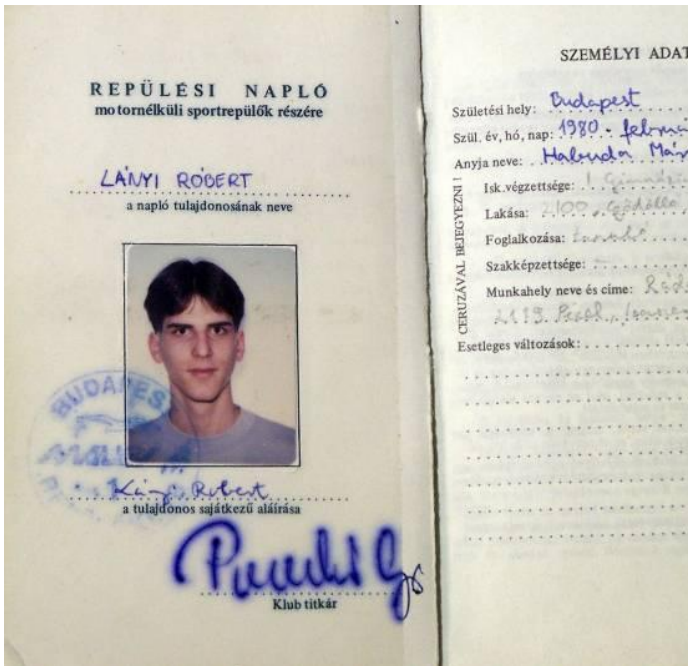 REPÜLÉSI NAPLÓ
motornélküli sportrepülők részére
LÁNYI RÓBERT
a napló tulajdonosának neve
BUDAPES
Lányi Robert
a tulajdonos sajátkezű aláírása
Klub titkár
SZEMÉLYI ADAT
Születési hely: Budapest
Szül. év, hó, nap: 1980. februá
Anyja neve: Habuda Már
CERUZÁVAL BEJEGYEZNI!
Isk.végzettsége: I
Lakása: 2100, Gödöllő
Foglalkozása: tanuló
Szakképzettsége: -
Munkahely neve és címe:
2119. Pécel,
Esetleges változások: